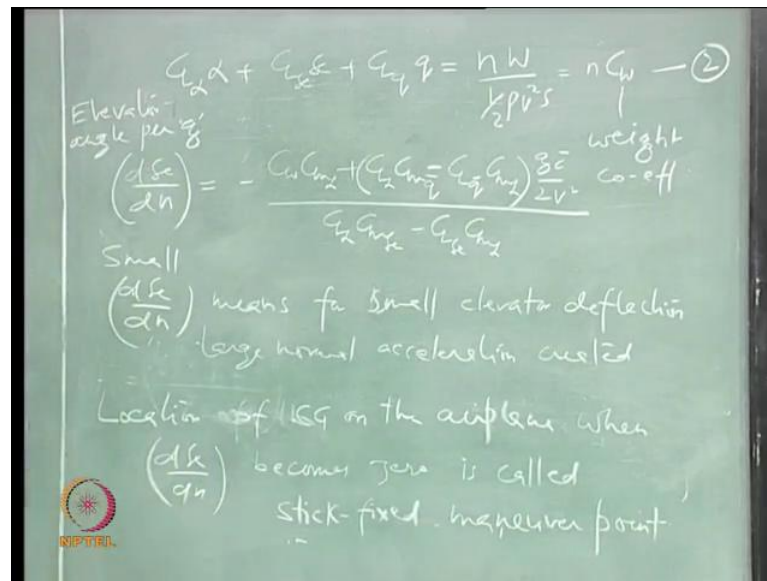 C_Lα α + C_Lδe δe + C_Lq q = nW / ½ρv²s = n C_W — ②
Elevator angle per 'g'
weight co-eff
(dδe/dn) = - C_W C_mα + (C_Lα C_mq̄ - C_Lq̄ C_mα) g c̄/2v² / C_Lα C_mδe - C_Lδe C_mα
Small
(dδe/dn) means for small elevator deflection
large normal acceleration created
Location of CG on the airplane when
(dδe/dn) becomes zero is called
stick-fixed maneuver point
NPTEL